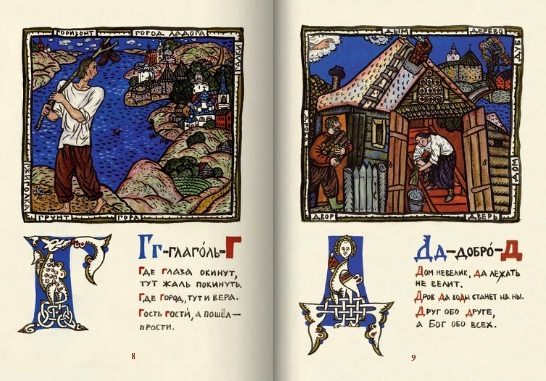 ГОРИЗОНТ ГОРОД ЛАДОГА
ГРУНТ ГОРА
Гг-глаго́ль-Г
Где глаза окинут,
тут жаль покинуть.
Где город, тут и вера.
Гость гости́, а пошёл–
прости.
8
ДЫМ ДЕРЕВО
ДОМ
ДВОР ДВЕРЬ
Дд-добро́-Д
Дом невелик, да лежать
не велит.
Дров да воды станет на ны.
Друг обо друге,
а Бог обо всех.
9